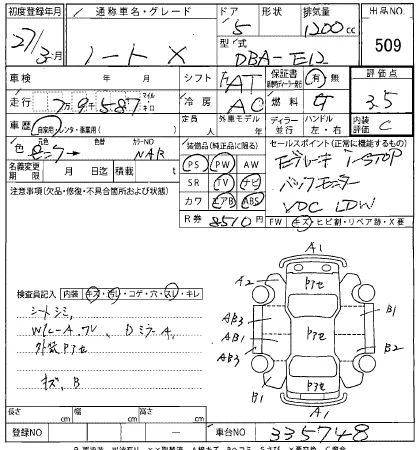 初度登録年月 通称車名・グレード ドア 形状 排気量 出品NO.
27/3月 ノート X 5 1200cc 509
型式 DBA-E12
車検 年 月 シフト FAT 保証書 有 無 評価点
走行 7万9千587 マイル キロ 冷房 AC 燃料 G 3.5
定員 人 外車モデル 年 ディーラー 並行 ハンドル 左・右 内装 C
車歴 自家用・レンタ・事業用( )
色 元色 色替 カラーNO NAR
名義変更期限 月 日迄 積載 t
装備品(純正品に限る)
PS PW AW
SR TV ナビ
カワ エアB ABS
R券 8510円
セールスポイント(正常に機能するもの)
エマブレーキ I-STOP
バックモニター
VDC LDW
注意事項(欠品・修復・不具合箇所および状態)
FW キズ・ヒビ割・リペア跡・X要
検査員記入 内装 キズ・汚レ・コゲ・穴・スレ・キレ
シートシミ,
W/L-A.フレ, DミラーA,
外装Pアセ
キズ、B
A1
A2 Pアセ
AB3 B1
AB3 Pアセ B2
AB1
B1 Pアセ B1
A1
長さ cm 幅 cm 高さ cm
登録NO — 車台NO 335748